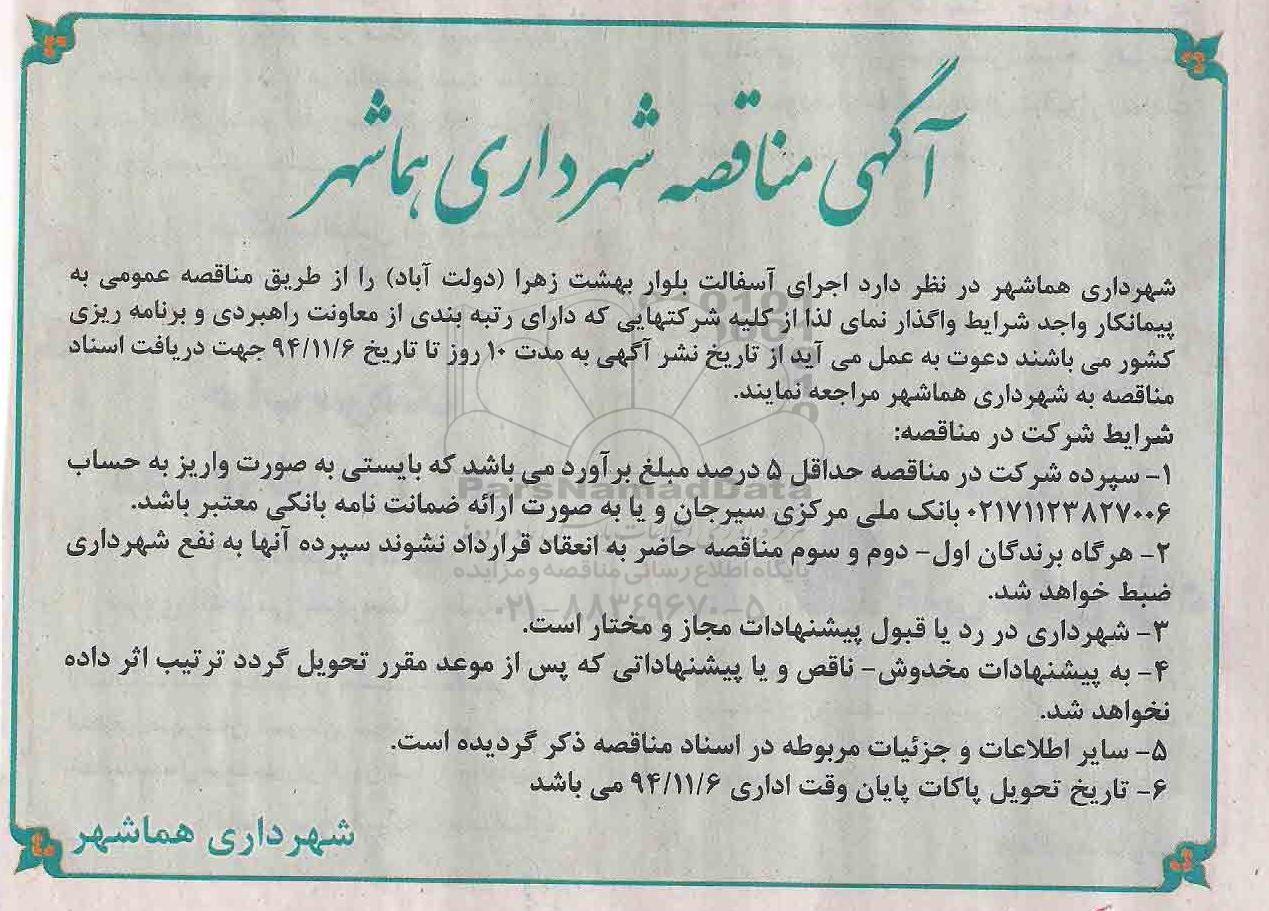 آگهی مناقصه شهرداری هماشهر
شهرداری هماشهر در نظر دارد اجرای آسفالت بلوار بهشت زهرا (دولت آباد) را از طریق مناقصه عمومی به
پیمانکار واجد شرایط واگذار نمای لذا از کلیه شرکتهایی که دارای رتبه بندی از معاونت راهبردی و برنامه ریزی
کشور می باشند دعوت به عمل می آید از تاریخ نشر آگهی به مدت ۱۰ روز تا تاریخ ۹۴/۱۱/۶ جهت دریافت اسناد
مناقصه به شهرداری هماشهر مراجعه نمایند.
شرایط شرکت در مناقصه:
۱- سپرده شرکت در مناقصه حداقل ۵ درصد مبلغ برآورد می باشد که بایستی به صورت واریز به حساب
۰۲۱۷۱۱۲۳۸۲۷۰۰۶ بانک ملی مرکزی سیرجان و یا به صورت ارائه ضمانت نامه بانکی معتبر باشد.
ParsNamadData
۲- هرگاه برندگان اول- دوم و سوم مناقصه حاضر به انعقاد قرارداد نشوند سپرده آنها به نفع شهرداری
پایگاه اطلاع رسانی مناقصه و مزایده
ضبط خواهد شد.
۰۲۱-۸۸۳۴۹۶۷۰-۵
۳- شهرداری در رد یا قبول پیشنهادات مجاز و مختار است.
۴- به پیشنهادات مخدوش- ناقص و یا پیشنهاداتی که پس از موعد مقرر تحویل گردد ترتیب اثر داده
نخواهد شد.
۵- سایر اطلاعات و جزئیات مربوطه در اسناد مناقصه ذکر گردیده است.
۶- تاریخ تحویل پاکات پایان وقت اداری ۹۴/۱۱/۶ می باشد
شهرداری هماشهر